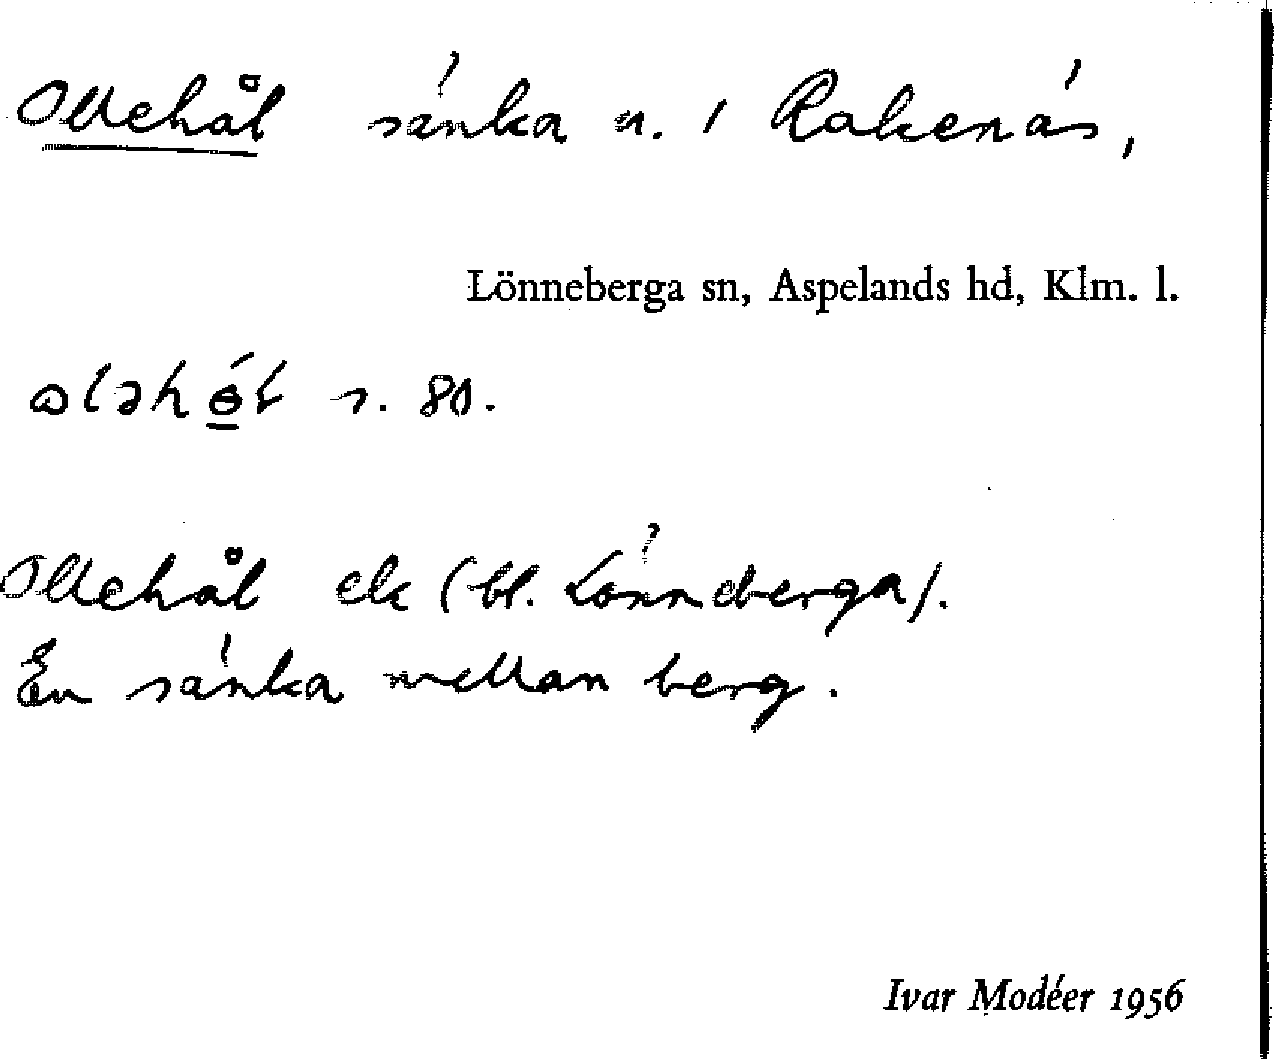 Ollehål sänka n. i Rakenäs,
Lönneberga sn, Aspelands hd, Klm. l.
s. 80.
Ollehål ek (bl. Lönneberga).
En sänka mellan berg.
Ivar Modéer 1956